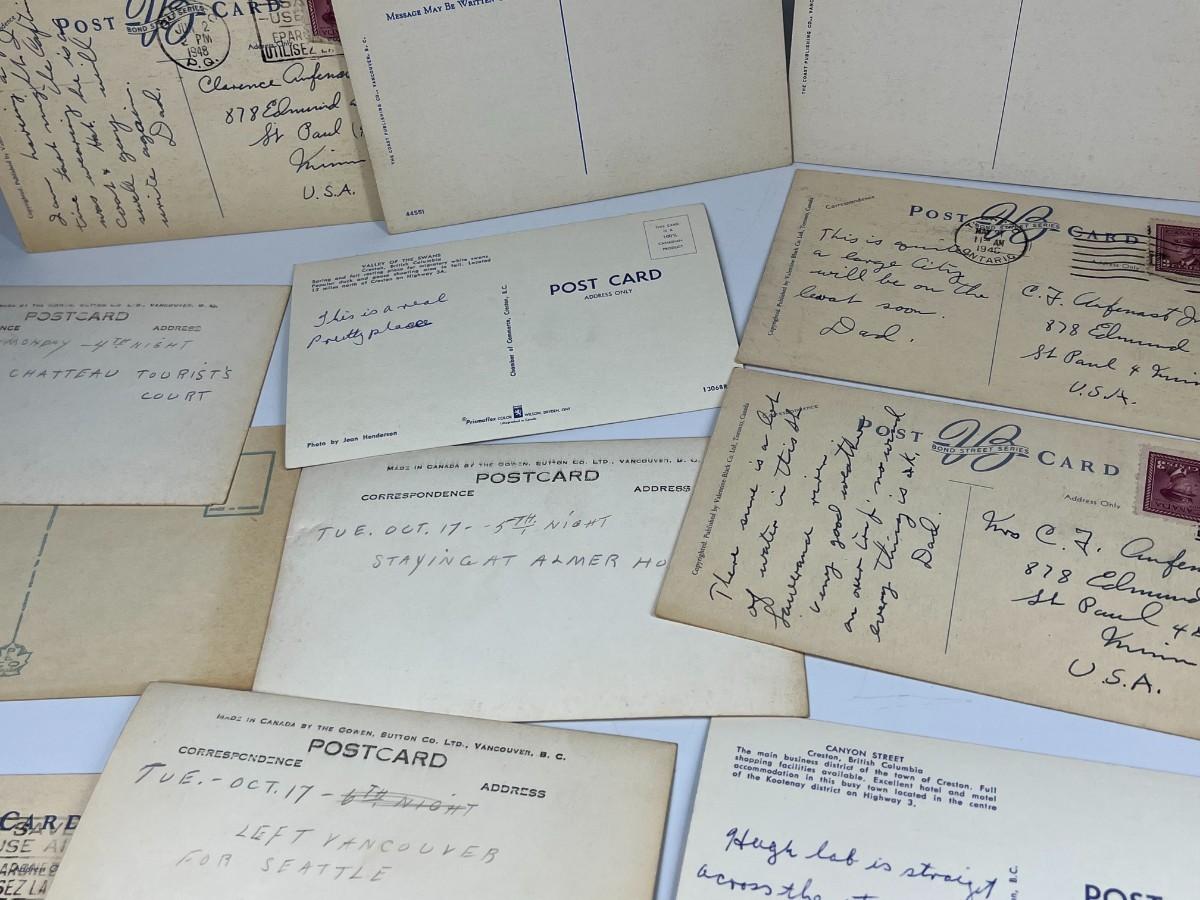 POST CARD
BOND STREET SERIES
JUN 2
PM
1948
P.Q.
Address Only
USE
UTILISEZ LA
having a
time wearing he is a
Hat will
coat & going
swell again.
write
Dad.
Clarence
878 Edmund
St Paul
Minn
U.S.A.
MESSAGE MAY BE WRITTEN
THE COAST PUBLISHING CO., VANCOUVER, B. C.
44551
THE COAST PUBLISHING CO., VANCOUVER
POST CARD
BOND STREET SERIES
Correspondence
Address Only
11 AM
ONTARIO
Copyrighted. Published by Valentine-Black Co. Ltd., Toronto, Canada
This is quite
a large City
will be on the
boat soon.
Dad.
878 Edmund
St Paul 4 Minn
U.S.A.
VALLEY OF THE SWANS
Creston, British Columbia
Spring and fall resting place for migratory white swans.
Popular duck and goose shooting area in fall. Located
12 miles north of Creston on Highway 3A.
This is a real
pretty place
THIS CARD
IS A
100%
CANADIAN
PRODUCT
POST CARD
ADDRESS ONLY
Chamber of Commerce, Creston, B.C.
Photo by Jean Henderson
Prismaflex COLOR WILSON, DRYDEN, ONT
Lithographed in Canada
MADE IN CANADA BY THE GOWEN, SUTTON CO. LTD., VANCOUVER, B. C.
POSTCARD
ADDRESS
MONDAY - 4TH NIGHT
CHATTEAU TOURIST'S
COURT
MADE IN CANADA BY THE GOWEN, SUTTON CO. LTD., VANCOUVER, B. C.
POSTCARD
CORRESPONDENCE ADDRESS
TUE. OCT. 17 - 5TH NIGHT
STAYING AT ALMER HO
POST CARD
BOND STREET SERIES
Address Only
Copyrighted. Published by Valentine-Black Co. Ltd., Toronto, Canada
There sure is a lot
of water in this St
river
very good weather
on our trip no wind
every thing is ok,
Dad.
Mrs C. F.
878 Edmund
St Paul 4
Minn
U.S.A.
MADE IN CANADA BY THE GOWEN, SUTTON CO. LTD., VANCOUVER, B. C.
POSTCARD
CORRESPONDENCE
ADDRESS
TUE. - OCT. 17 - 6TH NIGHT
LEFT VANCOUVER
FOR SEATTLE
CARD
SAVE
CANYON STREET
Creston, British Columbia
The main business district of the town of Creston. Full
shopping facilities available. Excellent hotel and motel
accommodation in this busy town located in the centre
of the Kootenay district on Highway 3.
Hugh lab is straigt
across the
B.C.
POST